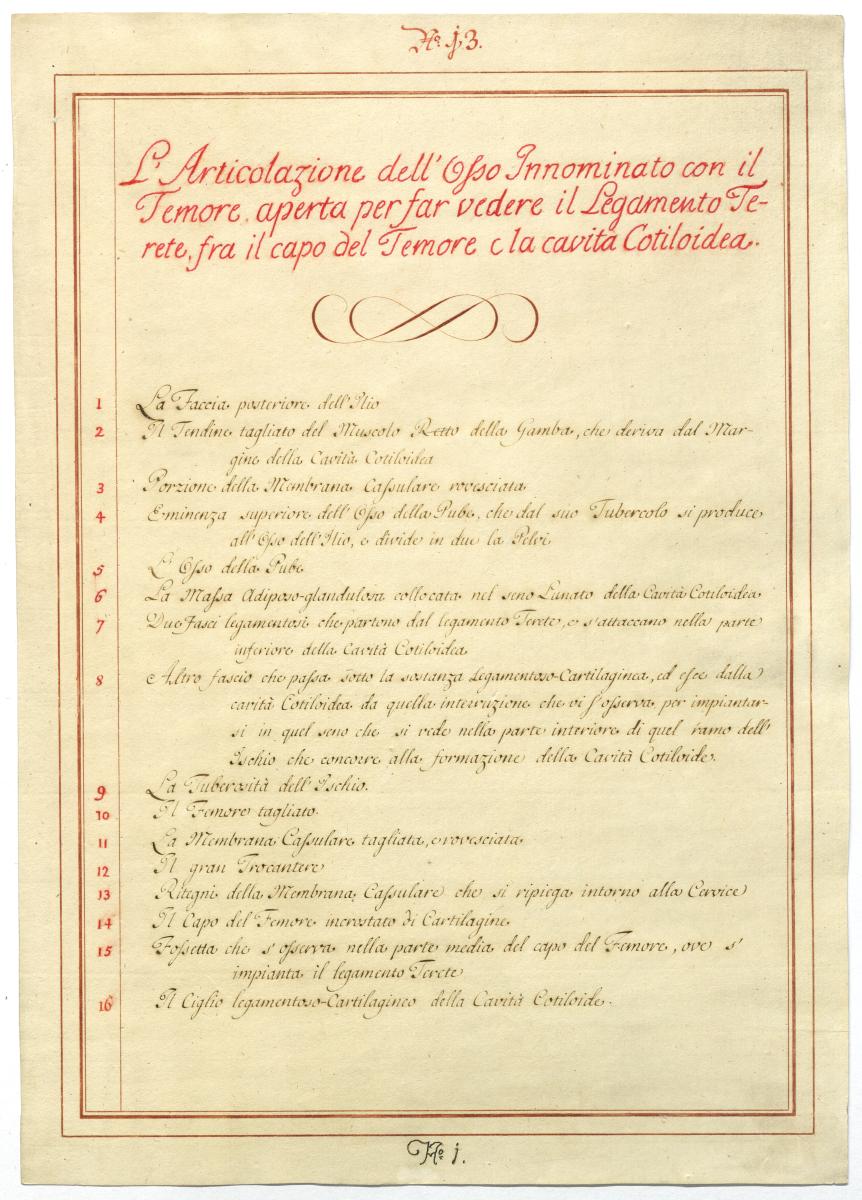 No. j3.
L'Articolazione dell'Osso Innominato con il
Femore, aperta per far vedere il Legamento Te-
rete, fra il capo del Femore e la cavità Cotiloidea.
1 La Faccia posteriore dell'Ilio
2 Il Tendine tagliato del Muscolo Retto della Gamba, che deriva dal Mar-
gine della Cavità Cotiloidea
3 Porzione della Membrana Cassulare rovesciata
4 Eminenza superiore dell'Osso della Pube, che dal suo Tubercolo si produce
all'Osso dell'Ilio, e divide in due la Pelvi
5 L'Osso della Pube
6 La Massa Adiposo-glandulosa collocata nel seno Lunato della Cavità Cotiloidea
7 Due Fasci legamentosi che partono dal legamento Terete, e s'attaccano nella parte
inferiore della Cavità Cotiloidea
8 Altro fascio che passa sotto la sostanza Legamentoso-Cartilaginea, ed esce dalla
cavità Cotiloidea da quella interruzione che vi s'osserva, per impiantar-
si in quel seno che si vede nella parte interiore di quel ramo dell'
Ischio che concorre alla formazione della Cavità Cotiloide.
9 La Tuberosità dell'Ischio.
10 Il Femore tagliato.
11 La Membrana Cassulare tagliata, e rovesciata
12 Il gran Trocantere
13 Ritegni della Membrana Cassulare che si ripiega intorno alla Cervice
14 Il Capo del Femore incrostato di Cartilagine
15 Fossetta che s'osserva nella parte media del capo del Femore, ove s'
impianta il legamento Terete
16 Il Ciglio legamentoso-Cartilagineo della Cavità Cotiloide.
No. j.